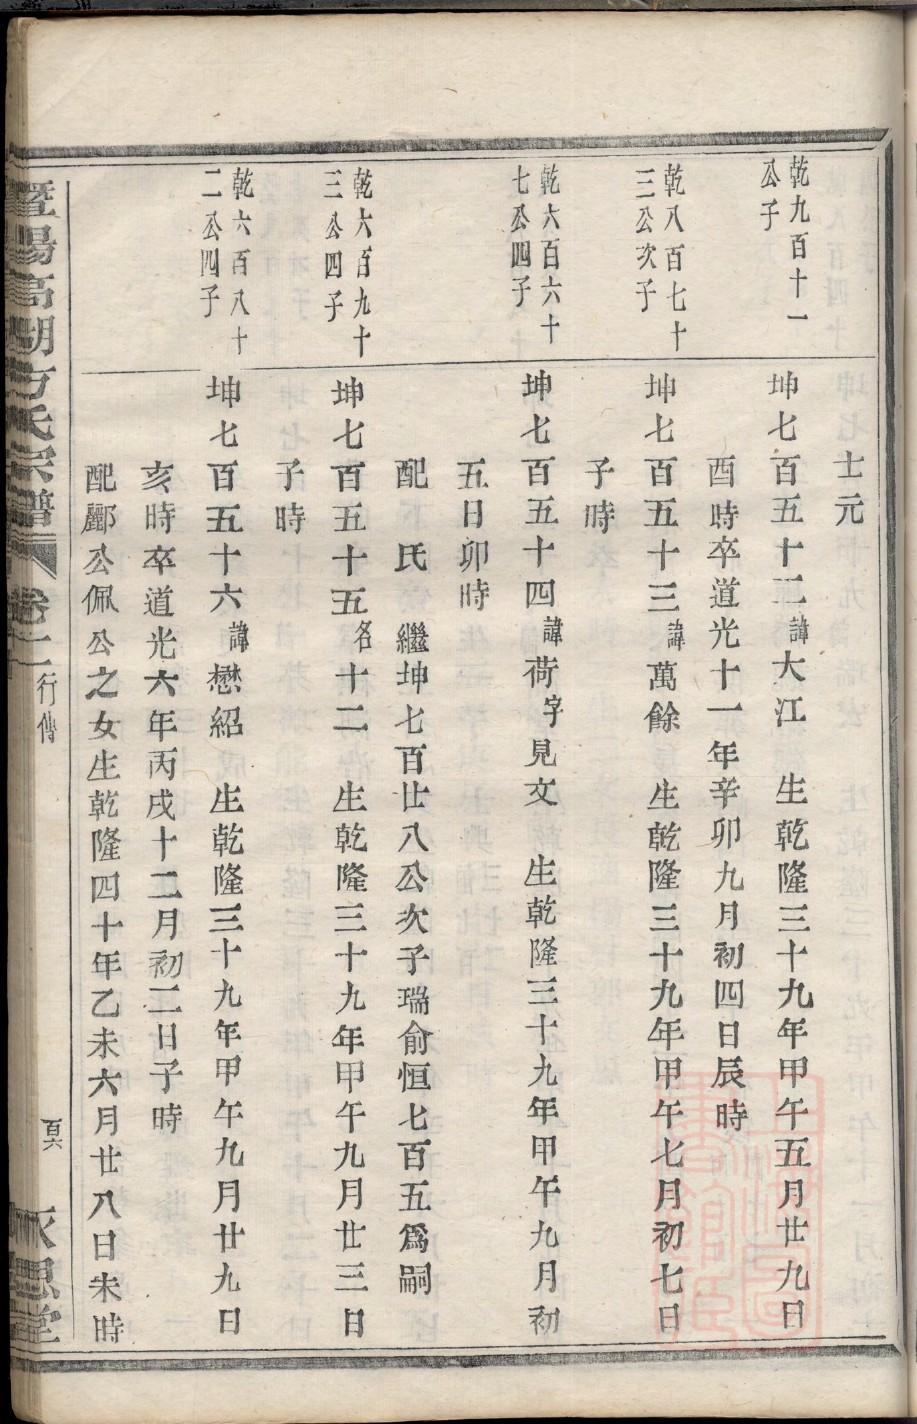 士元
乾九百十一公子
坤七百五十二諱大江 生乾隆三十九年甲午五月廿九日
酉時卒道光十一年辛卯九月初四日辰時
乾八百七十三公次子
坤七百五十三諱萬餘 生乾隆三十九年甲午七月初七日
子時
乾六百六十七公四子
坤七百五十四諱荷字見文 生乾隆三十九年甲午九月初
五日卯時
配 氏 繼坤七百廿八公次子瑞俞恒七百五爲嗣
乾六百九十三公四子
坤七百五十五名十二 生乾隆三十九年甲午九月廿三日
子時
乾六百八十二公四子
坤七百五十六諱懋紹 生乾隆三十九年甲午九月廿九日
亥時卒道光六年丙戌十二月初二日子時
配酈公佩公之女生乾隆四十年乙未六月廿八日未時
暨陽高湖方氏宗譜 行傳 百六 思堂